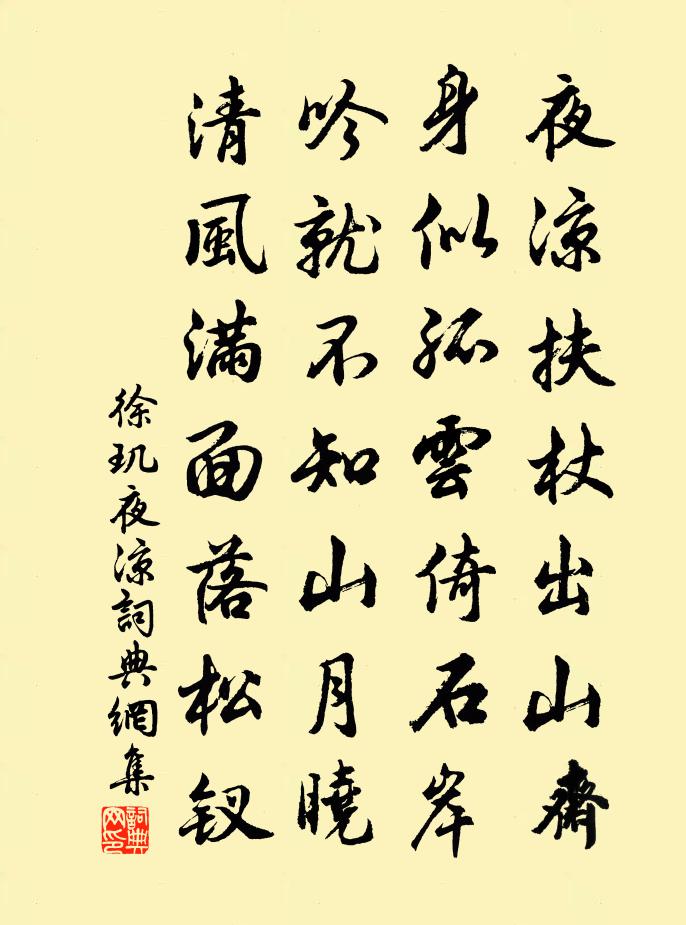 夜涼扶杖出山齋
身似孤雲倚石岸
吟就不知山月曉
清風滿面落松釵
徐玑夜涼詞典網集
詞典网印